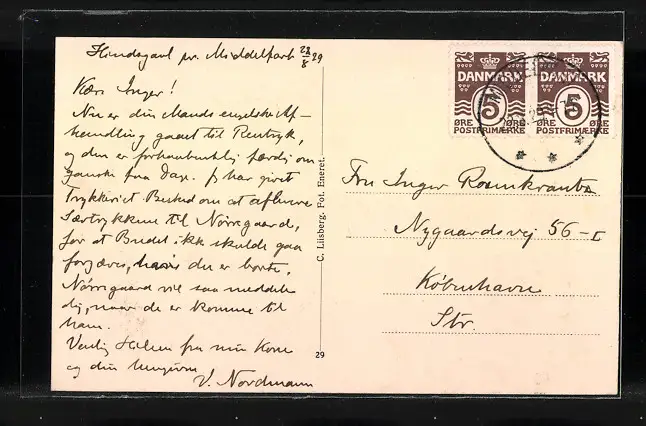 Hindsgavl pr. Middelfart 28/8 29
Kære Inger!
Nu er din Mands engelske Af-
handling gaaet til Rentryk,
og den er forhaabentlig færdig om
ganske faa Dage. Jeg har givet
Trykkeriet Besked om at aflevere
Særtrykkene til Nørregaard,
for at Budet ikke skulde gaa
forgæves, hvis du er borte.
Nørregaard vil saa meddele
dig, naar de er komne til
ham.
Venlig Hilsen fra min Kone
og din hengivne
V. Nordmann
C. Liisberg. Fot. Eneret.
29
DANMARK
5
ØRE ØRE
POSTFRIMÆRKE
DANMARK
5
ØRE ØRE
POSTFRIMÆRKE
Fru Inger Rosenkrantz
Nygaardsvej 56-I
København
Str.